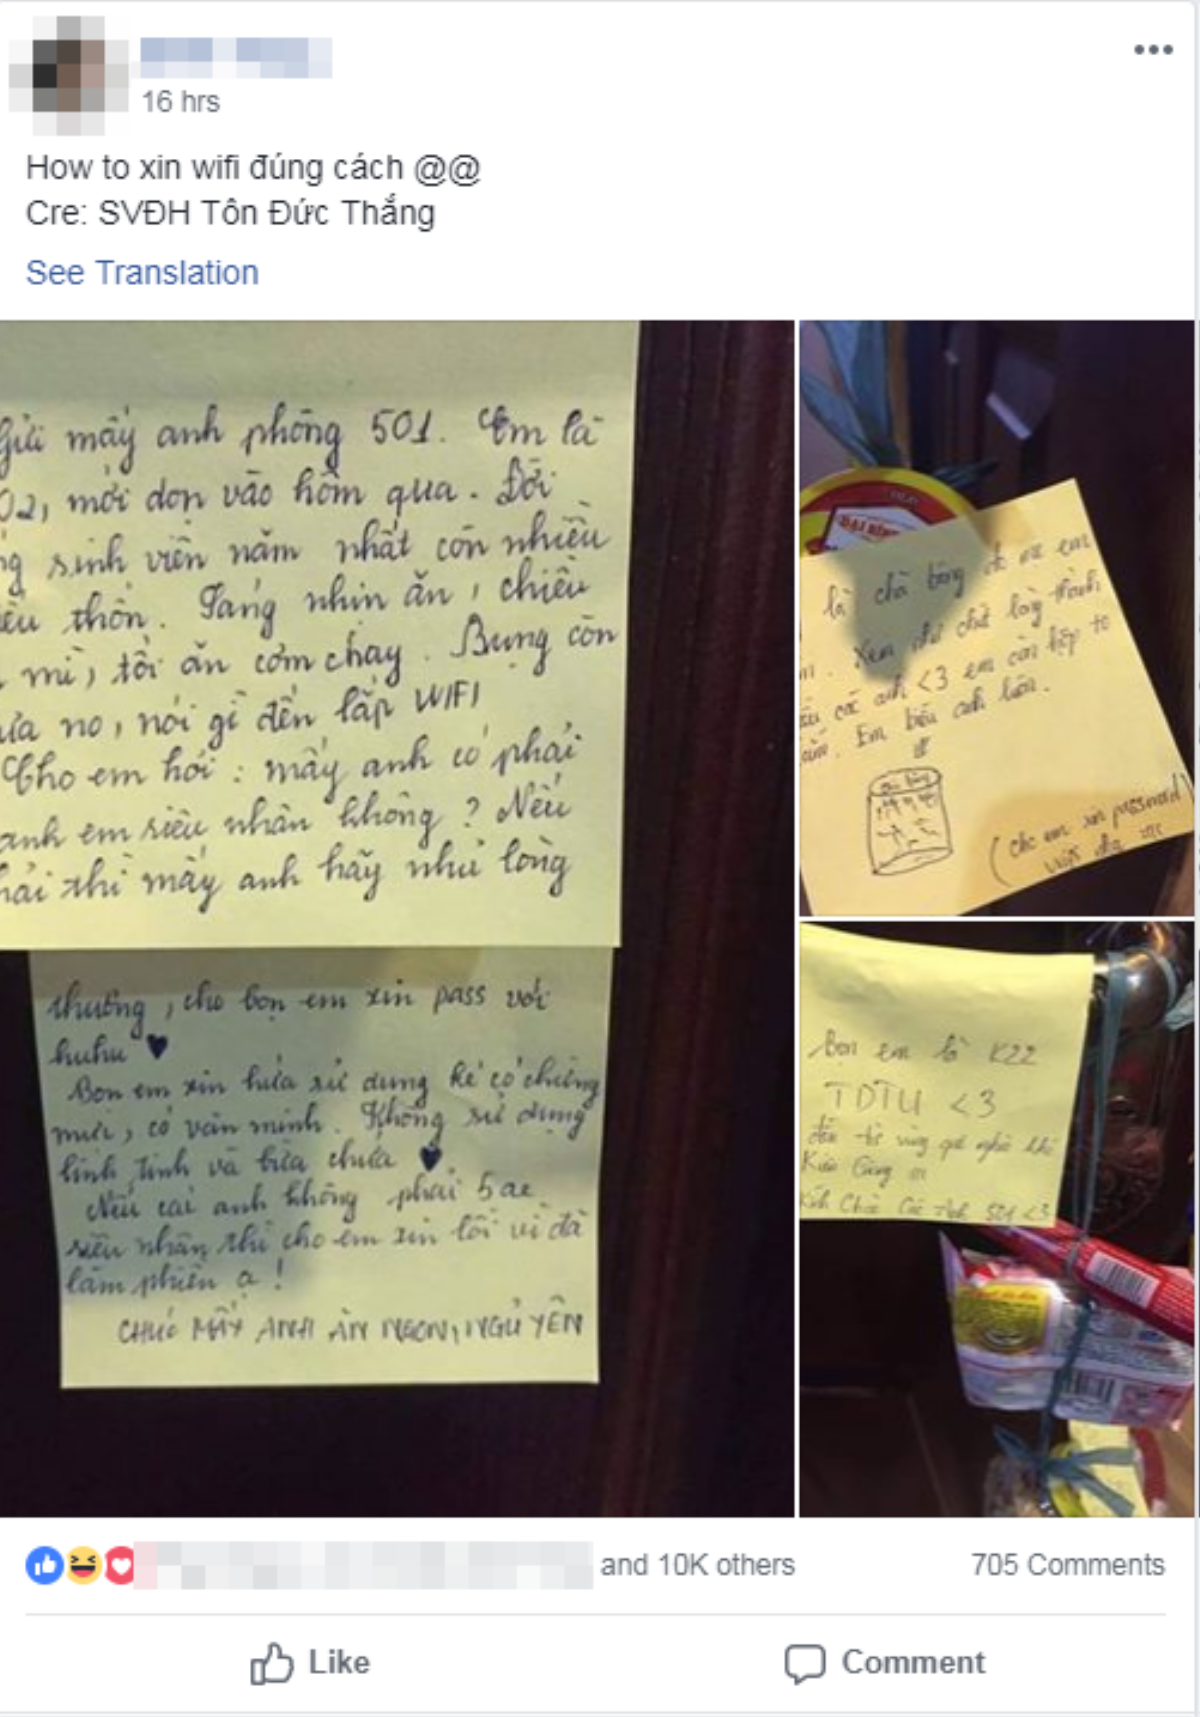 16 hrs
How to xin wifi đúng cách @@
Cre: SVĐH Tôn Đức Thắng
See Translation
Gửi mấy anh phòng 501. Em là
02, mới dọn vào hôm qua. Đời
sinh viên năm nhất còn nhiều
thốn. Sáng nhịn ăn, chiều
mì, tối ăn cơm cháy. Bụng còn
no, nói gì đến lắp WIFI
Cho em hỏi: mấy anh có phải
anh em siêu nhân không? Nếu
thì mấy anh hãy nhủ lòng
thương, cho bọn em xin pass với
huhu ♥
Bọn em xin hứa sử dụng có chừng
mực, có văn minh. Không sử dụng
linh tinh và bừa
Nếu các anh không phải 5 ae
siêu nhân thì cho em xin lỗi vì đã
làm phiền ạ!
CHÚC MẤY ANH ĂN NGON, NGỦ YÊN
là chà bông
Xem như chút lòng thành
các anh <3 em còn
Em biếu anh luôn.
(cho em xin password
wifi
Bọn em là K22
TDTU <3
đến từ vùng quê nghèo
Kiên Giang
Kính Chào Các Anh 501 <3
and 10K others
705 Comments
Like
Comment